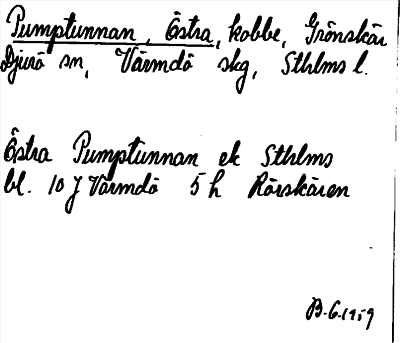 Pumptunnan, Östra, kobbe, Grönskär
Djurö sn, Värmdö skg, Sthlms l.
Östra Pumptunnan ek Sthlms
bl. 10 J Värmdö 5 h Rörskären
B.G. 1959